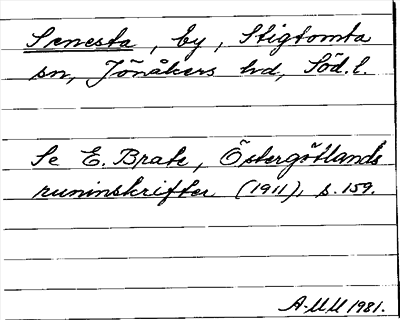 Senesta, by, Stigtomta
sn, Jönåkers hd, Söd.l.
Se E. Brate, Östergötlands
runinskrifter (1911), s. 159.
A-MM 1981.